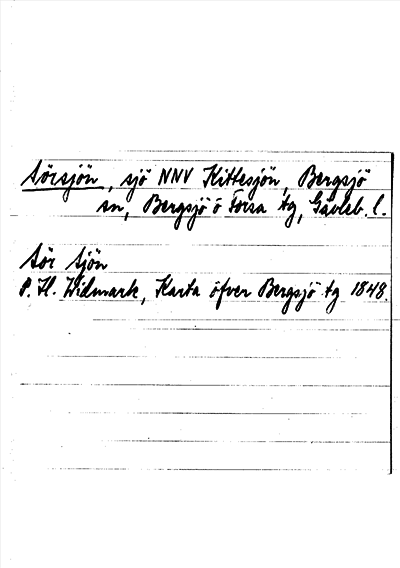 Sörsjön, sjö NNV Kittesjön, Bergsjö
sn, Bergsjö o Forsa tg, Gävleb. l.
Sör Sjön
P. H. Widmark, Karta öfver Bergsjö tg 1848.